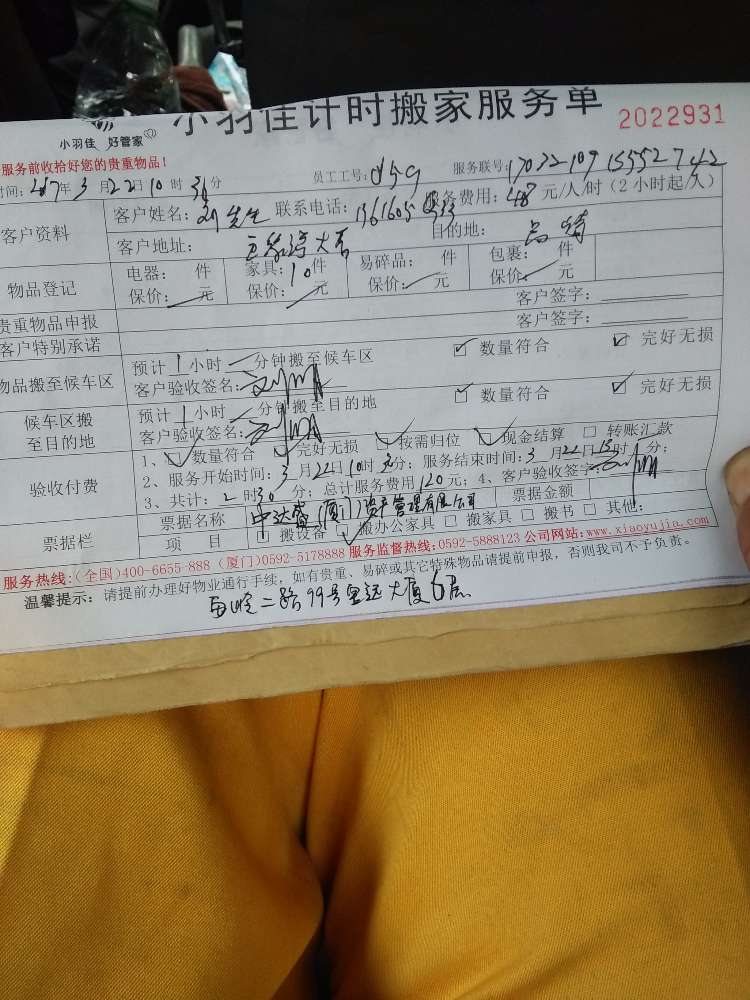 小羽佳计时搬家服务单
2022931
小羽佳 好管家
服务前收拾好您的贵重物品!
时间: 2017年3月22日10时30分 员工工号: 服务联号:
客户资料 客户姓名: 刘先生 联系电话: 服务费用: 48元/人/时(2小时起/人)
客户地址: 目的地:
物品登记 电器: 件 家具: 10件 易碎品: 件 包裹: 件
保价: 元 保价: 元 保价: 元 保价: 元
贵重物品申报 客户签字:
客户特别承诺 客户签字:
物品搬至候车区 预计1小时 分钟搬至候车区 ☑ 数量符合 ☑ 完好无损
客户验收签名:
候车区搬至目的地 预计1小时 分钟搬至目的地 ☑ 数量符合 ☑ 完好无损
客户验收签名:
验收付费 1、☑ 数量符合 ☑ 完好无损 ☑ 按需归位 ☑ 现金结算 □ 转账汇款
2、服务开始时间: 3月22日10时30分; 服务结束时间: 3月22日13时 分;
3、共计: 2时30分; 总计服务费用120元; 4、客户验收签字:
票据栏 票据名称 中达盛(厦门)资产管理有限公司 票据金额
项目 □ 搬设备 ☑ 搬办公家具 □ 搬家具 □ 搬书 □ 其他:
服务热线:(全国)400-6655-888 (厦门)0592-5178888 服务监督热线:0592-5888123 公司网站:www.xiaoyujia.com
温馨提示: 请提前办理好物业通行手续, 如有贵重、易碎或其它特殊物品请提前申报, 否则我司不予负责。
二路99号 大厦